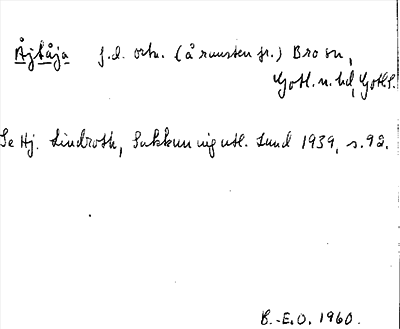 Åjkåja f.d. ortn. (å runsten fr.) Bro sn,
Gotl. n. hd, Gotl.
Se Hj. Lindroth, utl. Lund 1939, s. 92.
B.-E.O. 1960.